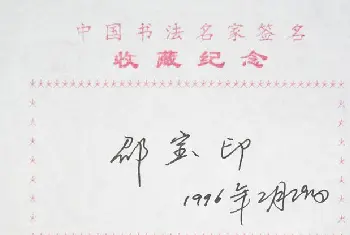 中国书法名家签名
收藏纪念
邵宝印
1996年2月29日